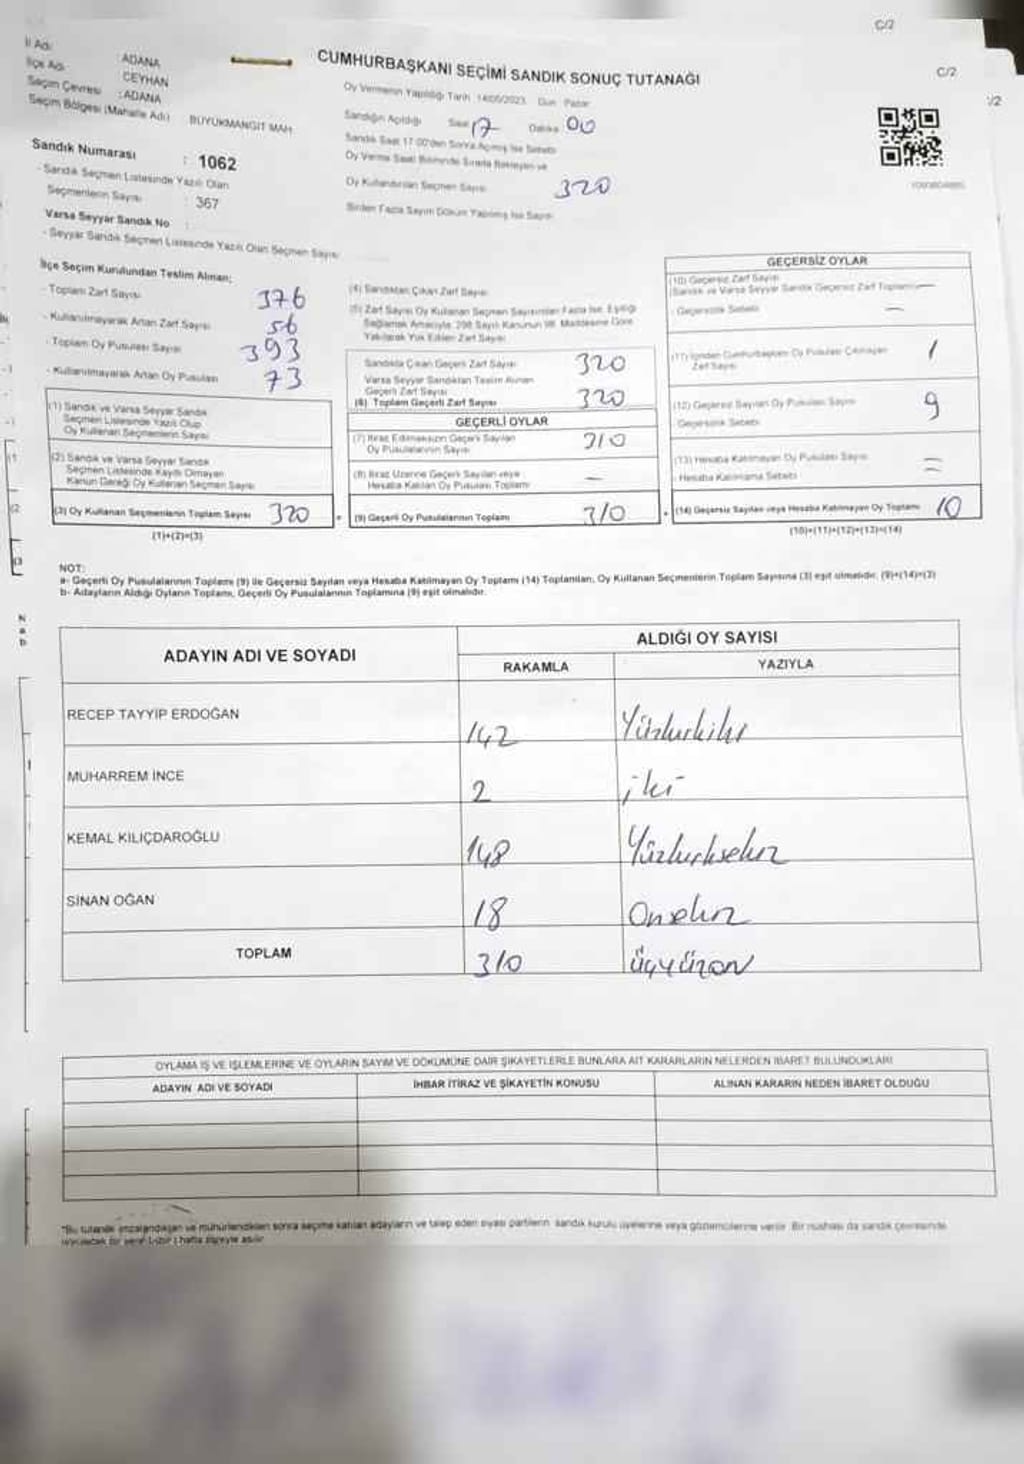 C/2
C/2
/2
İl Adı : ADANA
İlçe Adı : CEYHAN
Seçim Çevresi : ADANA
Seçim Bölgesi (Mahalle Adı) BÜYÜKMANGIT MAH.
Sandık Numarası : 1062
- Sandık Seçmen Listesinde Yazılı Olan
Seçmenlerin Sayısı : 367
Varsa Seyyar Sandık No :
- Seyyar Sandık Seçmen Listesinde Yazılı Olan Seçmen Sayısı
CUMHURBAŞKANI SEÇİMİ SANDIK SONUÇ TUTANAĞI
Oy Vermenin Yapıldığı Tarih 14/05/2023 Gün Pazar
Sandığın Açıldığı Saat 17 Dakika 00
Sandık Saat 17:00'den Sonra Açılmış İse Sebebi
Oy Verme Saati Bitiminde Sırada Bekleyen ve
Oy Kullandırılan Seçmen Sayısı 320
Birden Fazla Sayım Döküm Yapılmış İse Sayısı
İlçe Seçim Kurulundan Teslim Alınan;
- Toplam Zarf Sayısı 376
- Kullanılmayarak Artan Zarf Sayısı 56
- Toplam Oy Pusulası Sayısı 393
- Kullanılmayarak Artan Oy Pusulası 73
(1) Sandık ve Varsa Seyyar Sandık
Seçmen Listesinde Yazılı Olup
Oy Kullanan Seçmenlerin Sayısı
(2) Sandık ve Varsa Seyyar Sandık
Seçmen Listesinde Kayıtlı Olmayan
Kanun Gereği Oy Kullanan Seçmen Sayısı
(3) Oy Kullanan Seçmenlerin Toplam Sayısı 320
(1)+(2)=(3)
(4) Sandıktan Çıkan Zarf Sayısı
(5) Zarf Sayısı Oy Kullanan Seçmen Sayısından Fazla İse, Eşitliği
Sağlamak Amacıyla, 298 Sayılı Kanunun 98. Maddesine Göre
Yakılarak Yok Edilen Zarf Sayısı
Sandıkta Çıkan Geçerli Zarf Sayısı 320
Varsa Seyyar Sandıktan Teslim Alınan
Geçerli Zarf Sayısı
(6) Toplam Geçerli Zarf Sayısı 320
GEÇERLİ OYLAR
(7) İtiraz Edilmeksizin Geçerli Sayılan
Oy Pusulalarının Sayısı 310
(8) İtiraz Üzerine Geçerli Sayılan veya
Hesaba Katılan Oy Pusulası Toplamı —
(9) Geçerli Oy Pusulalarının Toplamı 310
GEÇERSİZ OYLAR
(10) Geçersiz Zarf Sayısı
(Sandık ve Varsa Seyyar Sandık Geçersiz Zarf Toplamı) —
- Geçersizlik Sebebi —
(11) İçinden Cumhurbaşkanı Oy Pusulası Çıkmayan
Zarf Sayısı 1
(12) Geçersiz Sayılan Oy Pusulası Sayısı 9
- Geçersizlik Sebebi
(13) Hesaba Katılmayan Oy Pusulası Sayısı —
- Hesaba Katılmama Sebebi —
(14) Geçersiz Sayılan veya Hesaba Katılmayan Oy Toplamı 10
(10)+(11)+(12)+(13)=(14)
NOT:
a- Geçerli Oy Pusulalarının Toplamı (9) ile Geçersiz Sayılan veya Hesaba Katılmayan Oy Toplamı (14) Toplanılan, Oy Kullanan Seçmenlerin Toplam Sayısına (3) eşit olmalıdır. (9)+(14)=(3)
b- Adayların Aldığı Oyların Toplamı, Geçerli Oy Pusulalarının Toplamına (9) eşit olmalıdır.
ADAYIN ADI VE SOYADI
ALDIĞI OY SAYISI
RAKAMLA YAZIYLA
RECEP TAYYİP ERDOĞAN 142 Yüzkırkiki
MUHARREM İNCE 2 iki
KEMAL KILIÇDAROĞLU 148 Yüzkırksekiz
SİNAN OĞAN 18 Onsekiz
TOPLAM 310 üçyüzon
OYLAMA İŞ VE İŞLEMLERİNE VE OYLARIN SAYIM VE DÖKÜMÜNE DAİR ŞİKAYETLERLE BUNLARA AİT KARARLARIN NELERDEN İBARET BULUNDUKLARI
ADAYIN ADI VE SOYADI İHBAR İTİRAZ VE ŞİKAYETİN KONUSU ALINAN KARARIN NEDEN İBARET OLDUĞU
*Bu tutanak imzalandıktan ve mühürlendikten sonra seçime katılan adayların ve talep eden siyasi partilerin sandık kurulu üyelerine veya gözlemcilerine verilir. Bir nüshası da sandık çevresinde